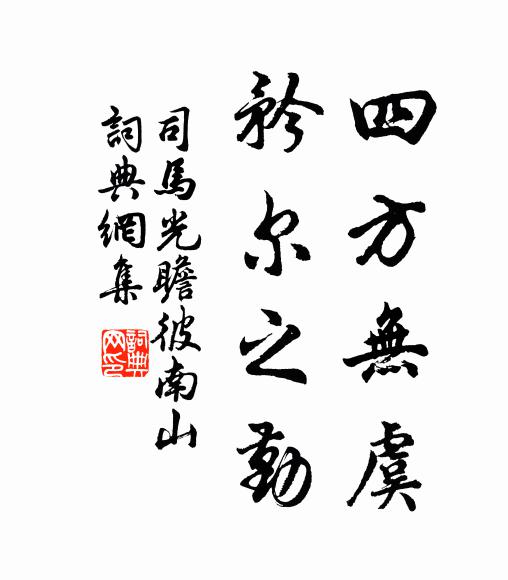 四方無虞
矜尔之勤
司馬光瞻彼南山
詞典網集
詞典网印